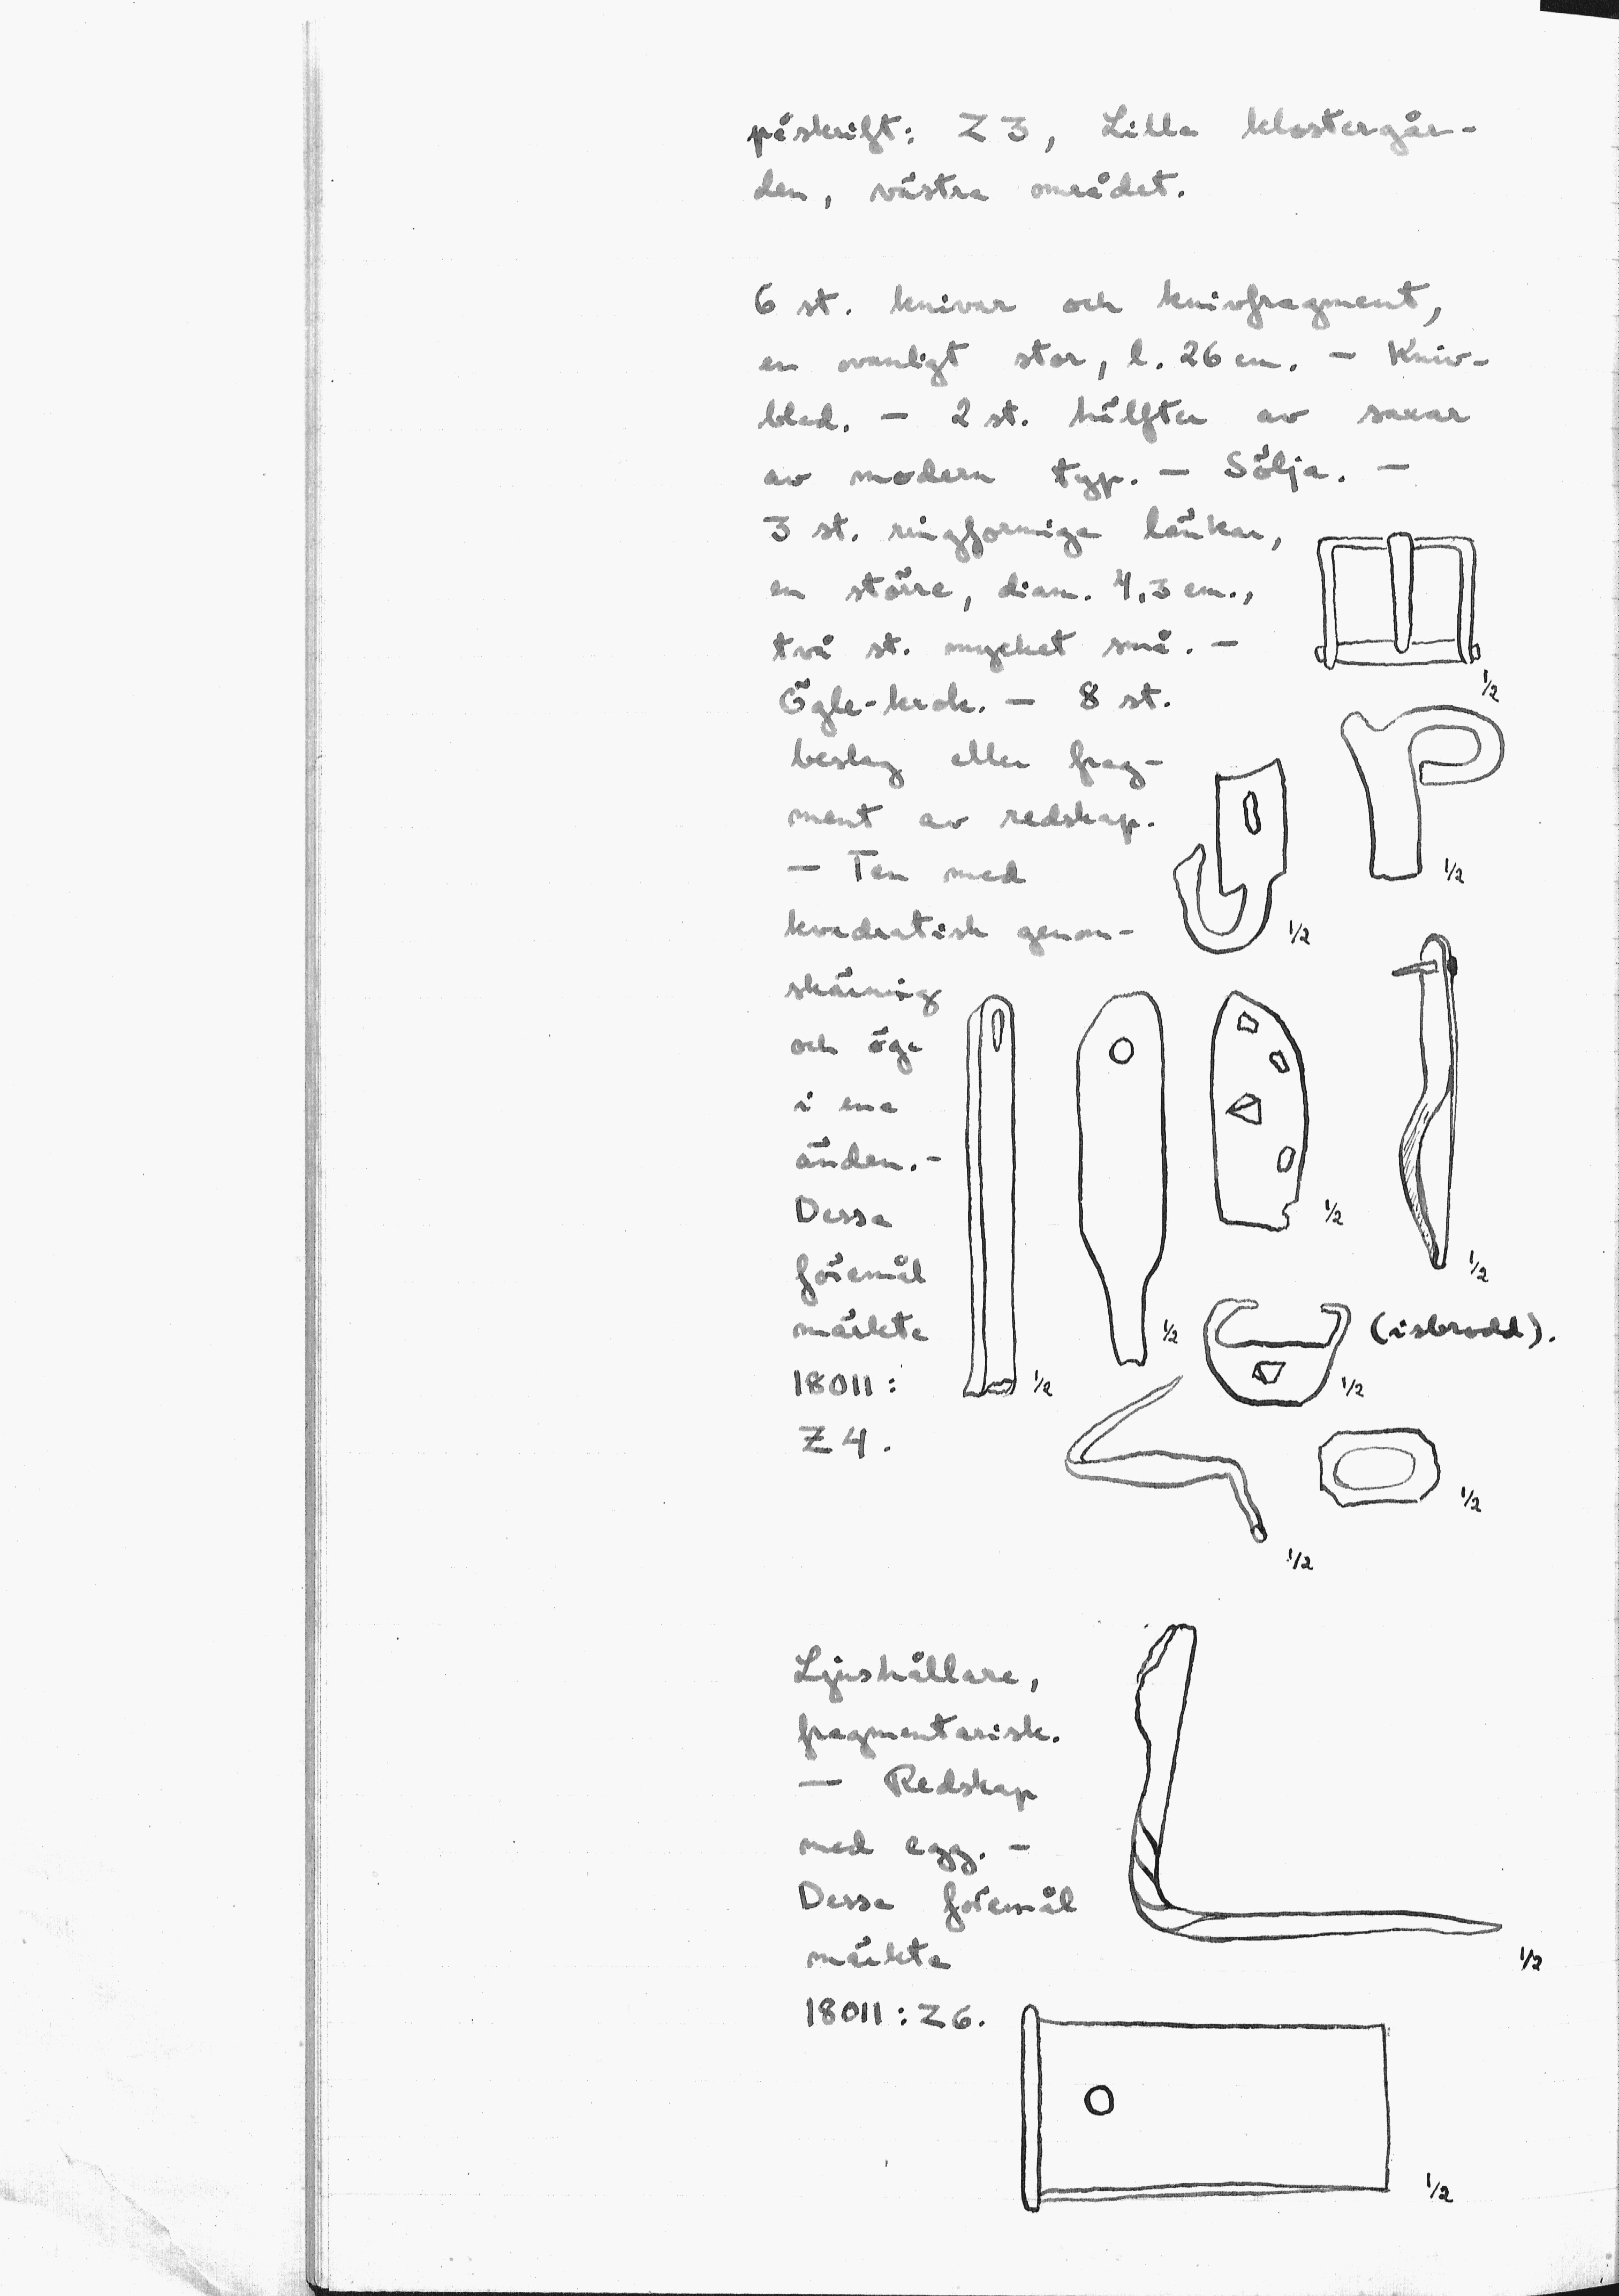 påskrift: Z 3, Lilla klostergår-
den, västra området.
6 st. knivar och knivfragment,
en ovanligt stor, l. 26 cm. — Kniv-
blad. — 2 st. hälfter av saxar
av modern typ. — Sölja. —
3 st. ringformiga länkar,
en större, diam. 4,3 cm.,
två st. mycket små. —
Ögle-krok. — 8 st.
beslag eller frag-
ment av redskap.
— Ten med
kvadratisk genom-
skärning
och öga
i ena
änden. —
Dessa
föremål
märkta
18011:
Z 4.
1/2
1/2
1/2
1/2
1/2
1/2
1/2
(isbrodd).
1/2
1/2
1/2
Ljushållare,
fragmentarisk.
— Redskap
med egg. —
Dessa föremål
märkta
18011: Z 6.
1/2
1/2